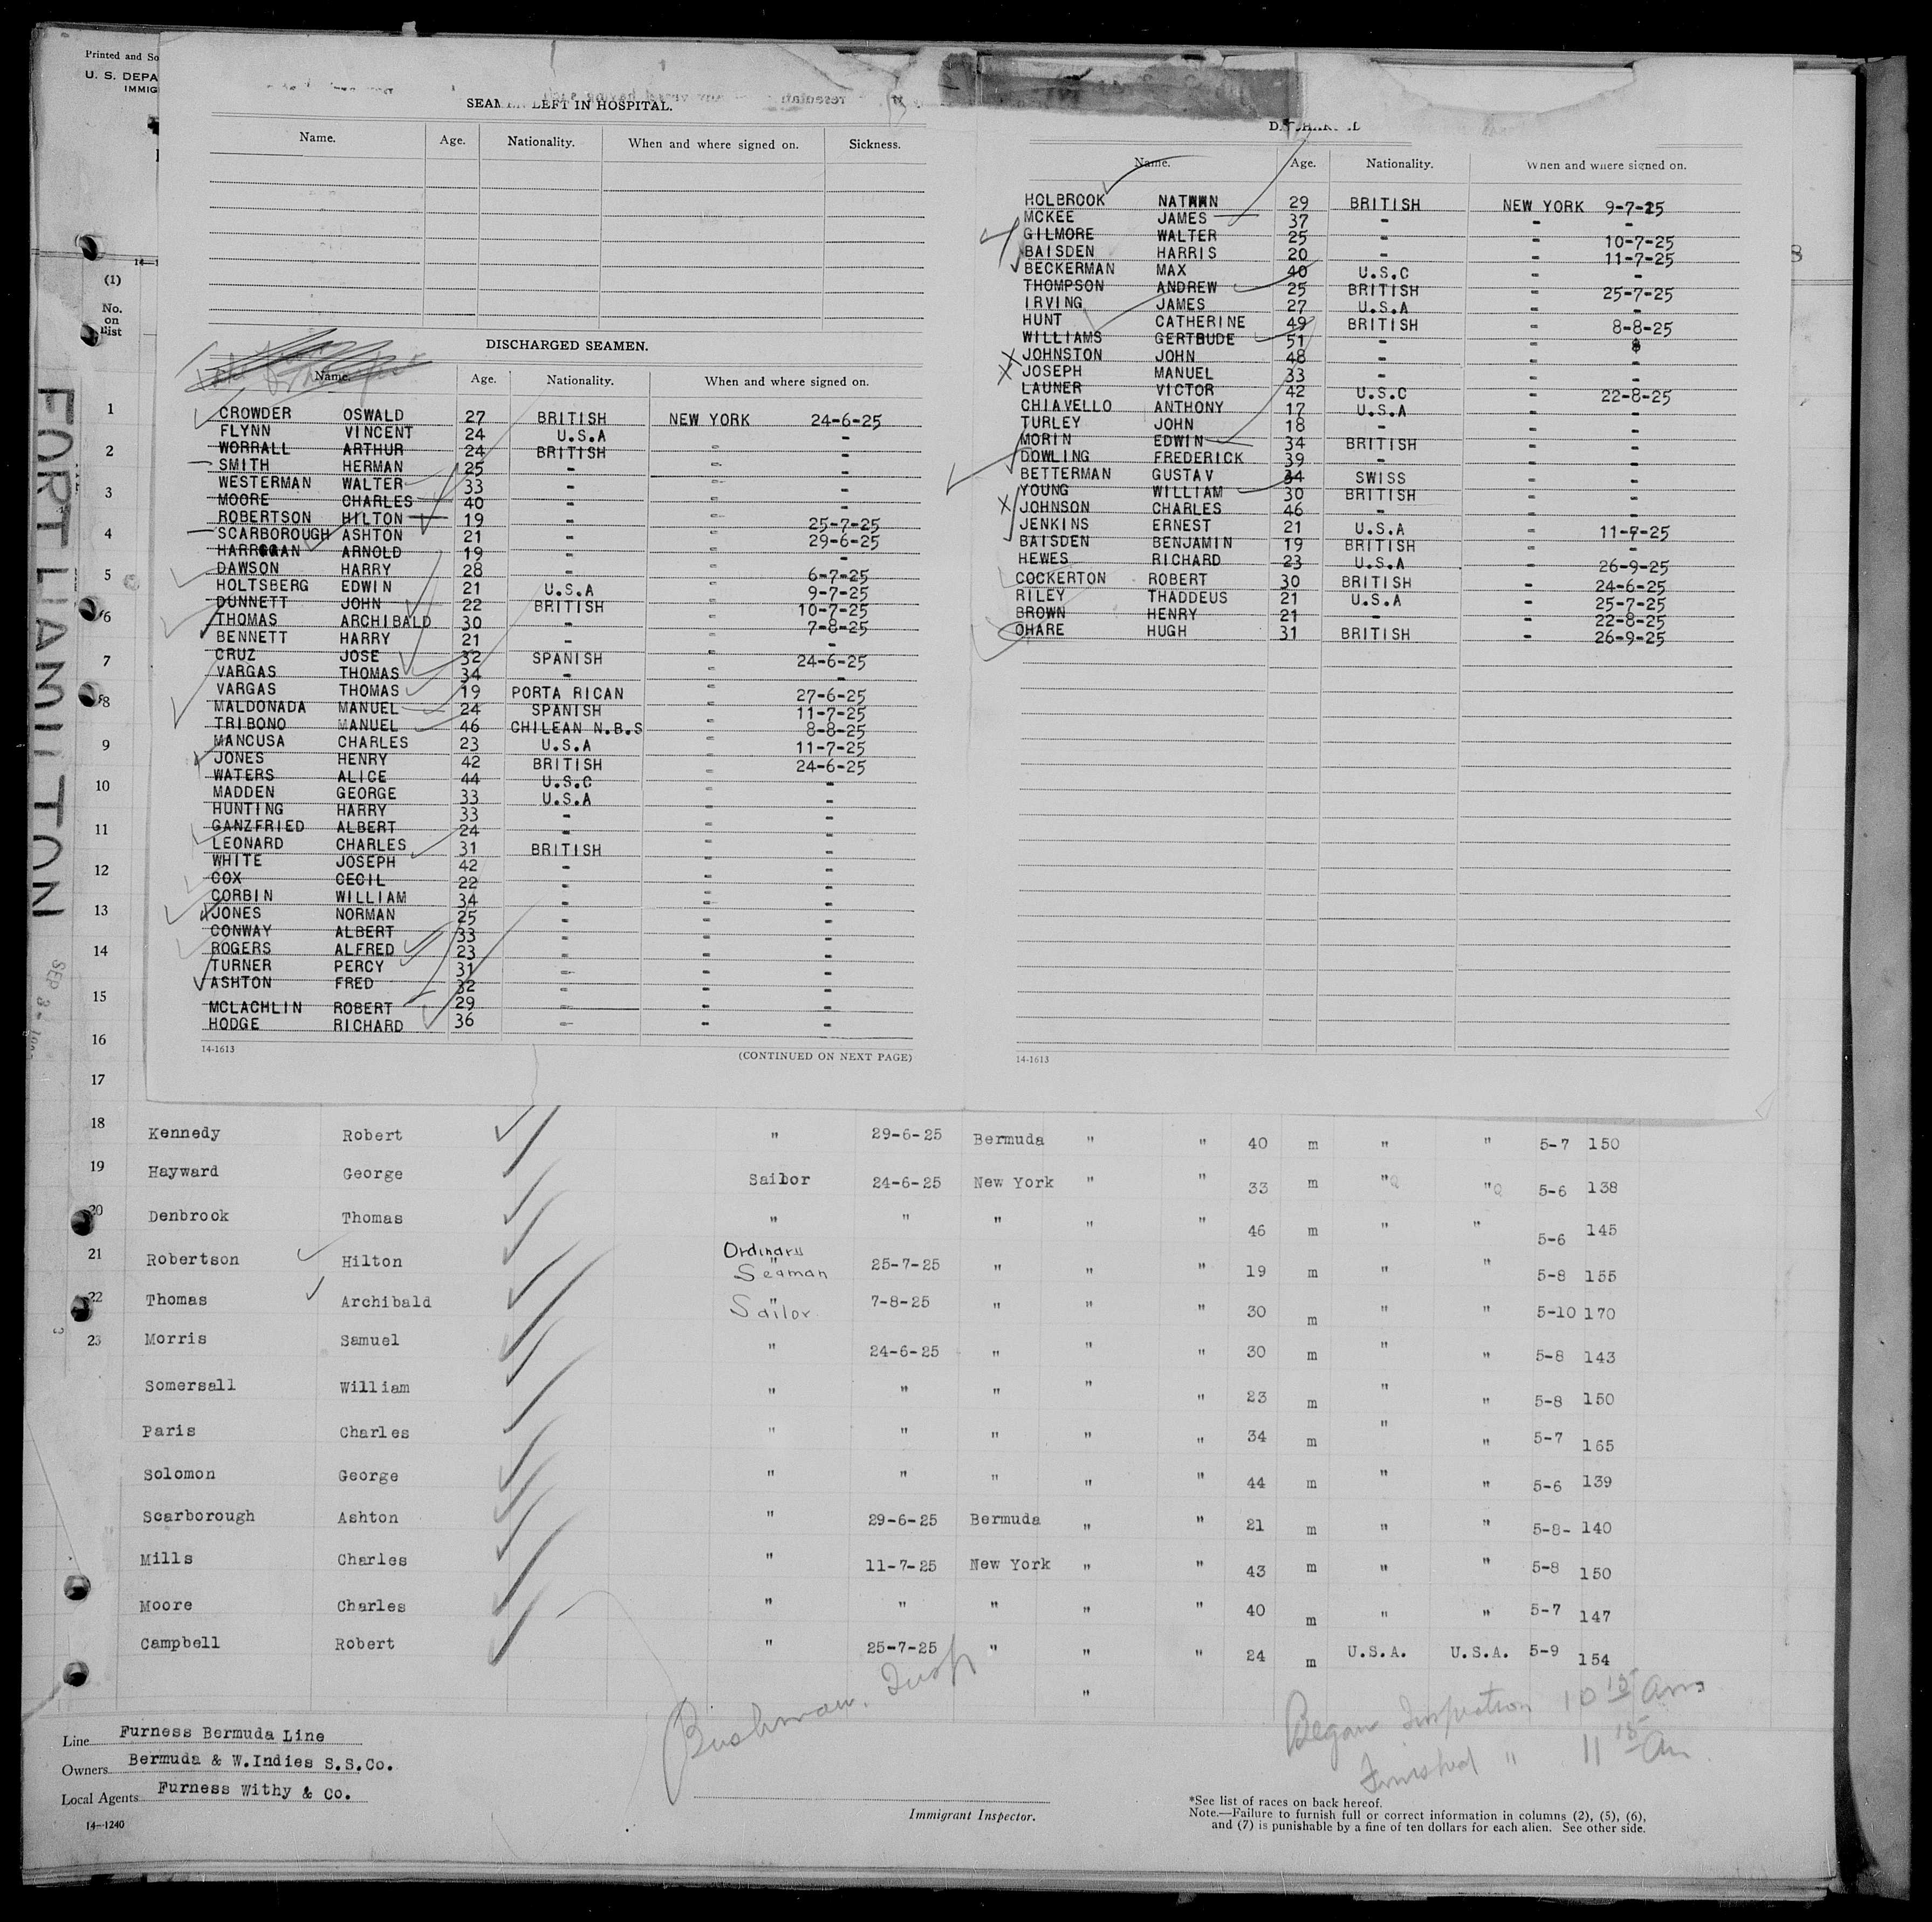 Printed and So
U. S. DEPA
IMMIG
(1)
No.
on
list
FORT HAMILTON
SEAMEN LEFT IN HOSPITAL.
Name. Age. Nationality. When and where signed on. Sickness.
DISCHARGED SEAMEN.
Name. Age. Nationality. When and where signed on.
CROWDER OSWALD 27 BRITISH NEW YORK 24-6-25
FLYNN VINCENT 24 U.S.A " -
WORRALL ARTHUR 24 BRITISH " -
SMITH HERMAN 25 - " -
WESTERMAN WALTER 33 - " -
MOORE CHARLES 40 - " -
ROBERTSON HILTON 19 - " 25-7-25
SCARBOROUGH ASHTON 21 - " 29-6-25
HARRGGAN ARNOLD 19 - " -
DAWSON HARRY 28 - " 6-7-25
HOLTSBERG EDWIN 21 U.S.A " 9-7-25
DUNNETT JOHN 22 BRITISH " 10-7-25
THOMAS ARCHIBALD 30 - " 7-8-25
BENNETT HARRY 21 - " -
CRUZ JOSE 32 SPANISH " 24-6-25
VARGAS THOMAS 34 - " -
VARGAS THOMAS 19 PORTA RICAN " 27-6-25
MALDONADA MANUEL 24 SPANISH " 11-7-25
TRIBONO MANUEL 46 CHILEAN N.B.S " 8-8-25
MANCUSA CHARLES 23 U.S.A " 11-7-25
JONES HENRY 42 BRITISH " 24-6-25
WATERS ALICE 44 U.S.C " -
MADDEN GEORGE 33 U.S.A " -
HUNTING HARRY 33 - " -
GANZFRIED ALBERT 24 - " -
LEONARD CHARLES 31 BRITISH " -
WHITE JOSEPH 42 - " -
COX CECIL 22 - " -
CORBIN WILLIAM 34 - " -
JONES NORMAN 25 - " -
CONWAY ALBERT 33 - " -
ROGERS ALFRED 23 - " -
TURNER PERCY 31 - " -
ASHTON FRED 32 - " -
MCLACHLIN ROBERT 29 - " -
HODGE RICHARD 36 - " -
14-1613 (CONTINUED ON NEXT PAGE)
Name. Age. Nationality. When and where signed on.
HOLBROOK NATWWN 29 BRITISH NEW YORK 9-7-25
MCKEE JAMES 37 - - -
GILMORE WALTER 25 - - 10-7-25
BAISDEN HARRIS 20 - - 11-7-25
BECKERMAN MAX 40 U.S.C - -
THOMPSON ANDREW 25 BRITISH - 25-7-25
IRVING JAMES 27 U.S.A - -
HUNT CATHERINE 49 BRITISH - 8-8-25
WILLIAMS GERTRUDE 51 - -
JOHNSTON JOHN 48 - - -
JOSEPH MANUEL 33 - - -
LAUNER VICTOR 42 U.S.C - 22-8-25
CHIAVELLO ANTHONY 17 U.S.A - -
TURLEY JOHN 18 - - -
MORIN EDWIN 34 BRITISH - -
DOWLING FREDERICK 39 - - -
BETTERMAN GUSTAV 34 SWISS - -
YOUNG WILLIAM 30 BRITISH - -
JOHNSON CHARLES 46 - - -
JENKINS ERNEST 21 U.S.A - 11-7-25
BAISDEN BENJAMIN 19 BRITISH - -
HEWES RICHARD 23 U.S.A - 26-9-25
COCKERTON ROBERT 30 BRITISH - 24-6-25
RILEY THADDEUS 21 U.S.A - 25-7-25
BROWN HENRY 21 - - 22-8-25
OHARE HUGH 31 BRITISH - 26-9-25
14-1613
1
2
3
4
5
6
7
8
9
10
11
12
13
14
15
16
17
18 Kennedy Robert " 29-6-25 Bermuda " " 40 m " " 5-7 150
19 Hayward George Sailor 24-6-25 New York " " 33 m " " 5-6 138
20 Denbrook Thomas " " " " " 46 m " " 5-6 145
21 Robertson Hilton Ordinary Seaman 25-7-25 " " " 19 m " " 5-8 155
22 Thomas Archibald " Sailor 7-8-25 " " " 30 m " " 5-10 170
23 Morris Samuel " 24-6-25 " " " 30 m " " 5-8 143
Somersall William " " " " " 23 m " " 5-8 150
Paris Charles " " " " " 34 m " " 5-7 165
Solomon George " " " " " 44 m " " 5-6 139
Scarborough Ashton " 29-6-25 Bermuda " " 21 m " " 5-8- 140
Mills Charles " 11-7-25 New York " " 43 m " " 5-8 150
Moore Charles " " " " " 40 m " " 5-7 147
Campbell Robert " 25-7-25 " " " 24 m U.S.A. U.S.A. 5-9 154
"
Bushman, Insp
Began Inspection 10 15 Am
Finished " 11 15 Am
Line Furness Bermuda Line
Owners Bermuda & W.Indies S.S.Co.
Local Agents Furness Withy & Co.
14-1240
Immigrant Inspector.
*See list of races on back hereof.
Note.—Failure to furnish full or correct information in columns (2), (5), (6),
and (7) is punishable by a fine of ten dollars for each alien. See other side.